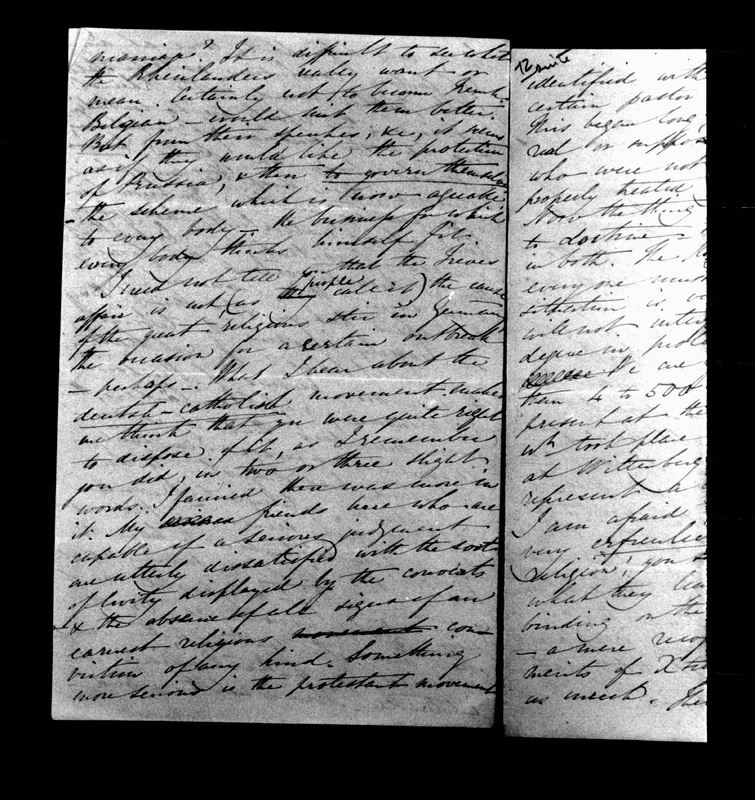 marriage? It is difficult to see what
the Rheinlanders really want or
mean. Certainly not to become French
Belgian - would suit them better.
But from their speeches, &c, it seems
as if they would like the protection
of Prussia, & then to govern themselves
- the scheme which is most agreeable
to every body - the business for which
every body thinks himself fit.
I need not tell you that the Treves
affair is not (as people call it) the cause
of the great religious stir in Germany
the occasion for a certain outbreak
- perhaps - What I hear about the
deutsch-catholisch movement makes
me think that you were quite right
to dispose of it, as I remember
you did, in two or three slight
words. I fancied there was more in
it. My friends here who are
capable of a serious judgement
are utterly dissatisfied with the sort
of levity displayed by the converts
& the absence of all signs of an
earnest religious movement con-
viction of any kind. Something
more serious is the protestant movement
identified with
certain pastor
This began long
real or suppos
who were not
properly heated
Now the thing
to doctrine -
in both. The
every one must
will not inter
degree in
We are
than 4 to 500
present at the
wh took place
at Wittenberg
represent a
I am afraid
very
religion; you
what they
binding on the
- a mere recog
ments of X
as insect. The